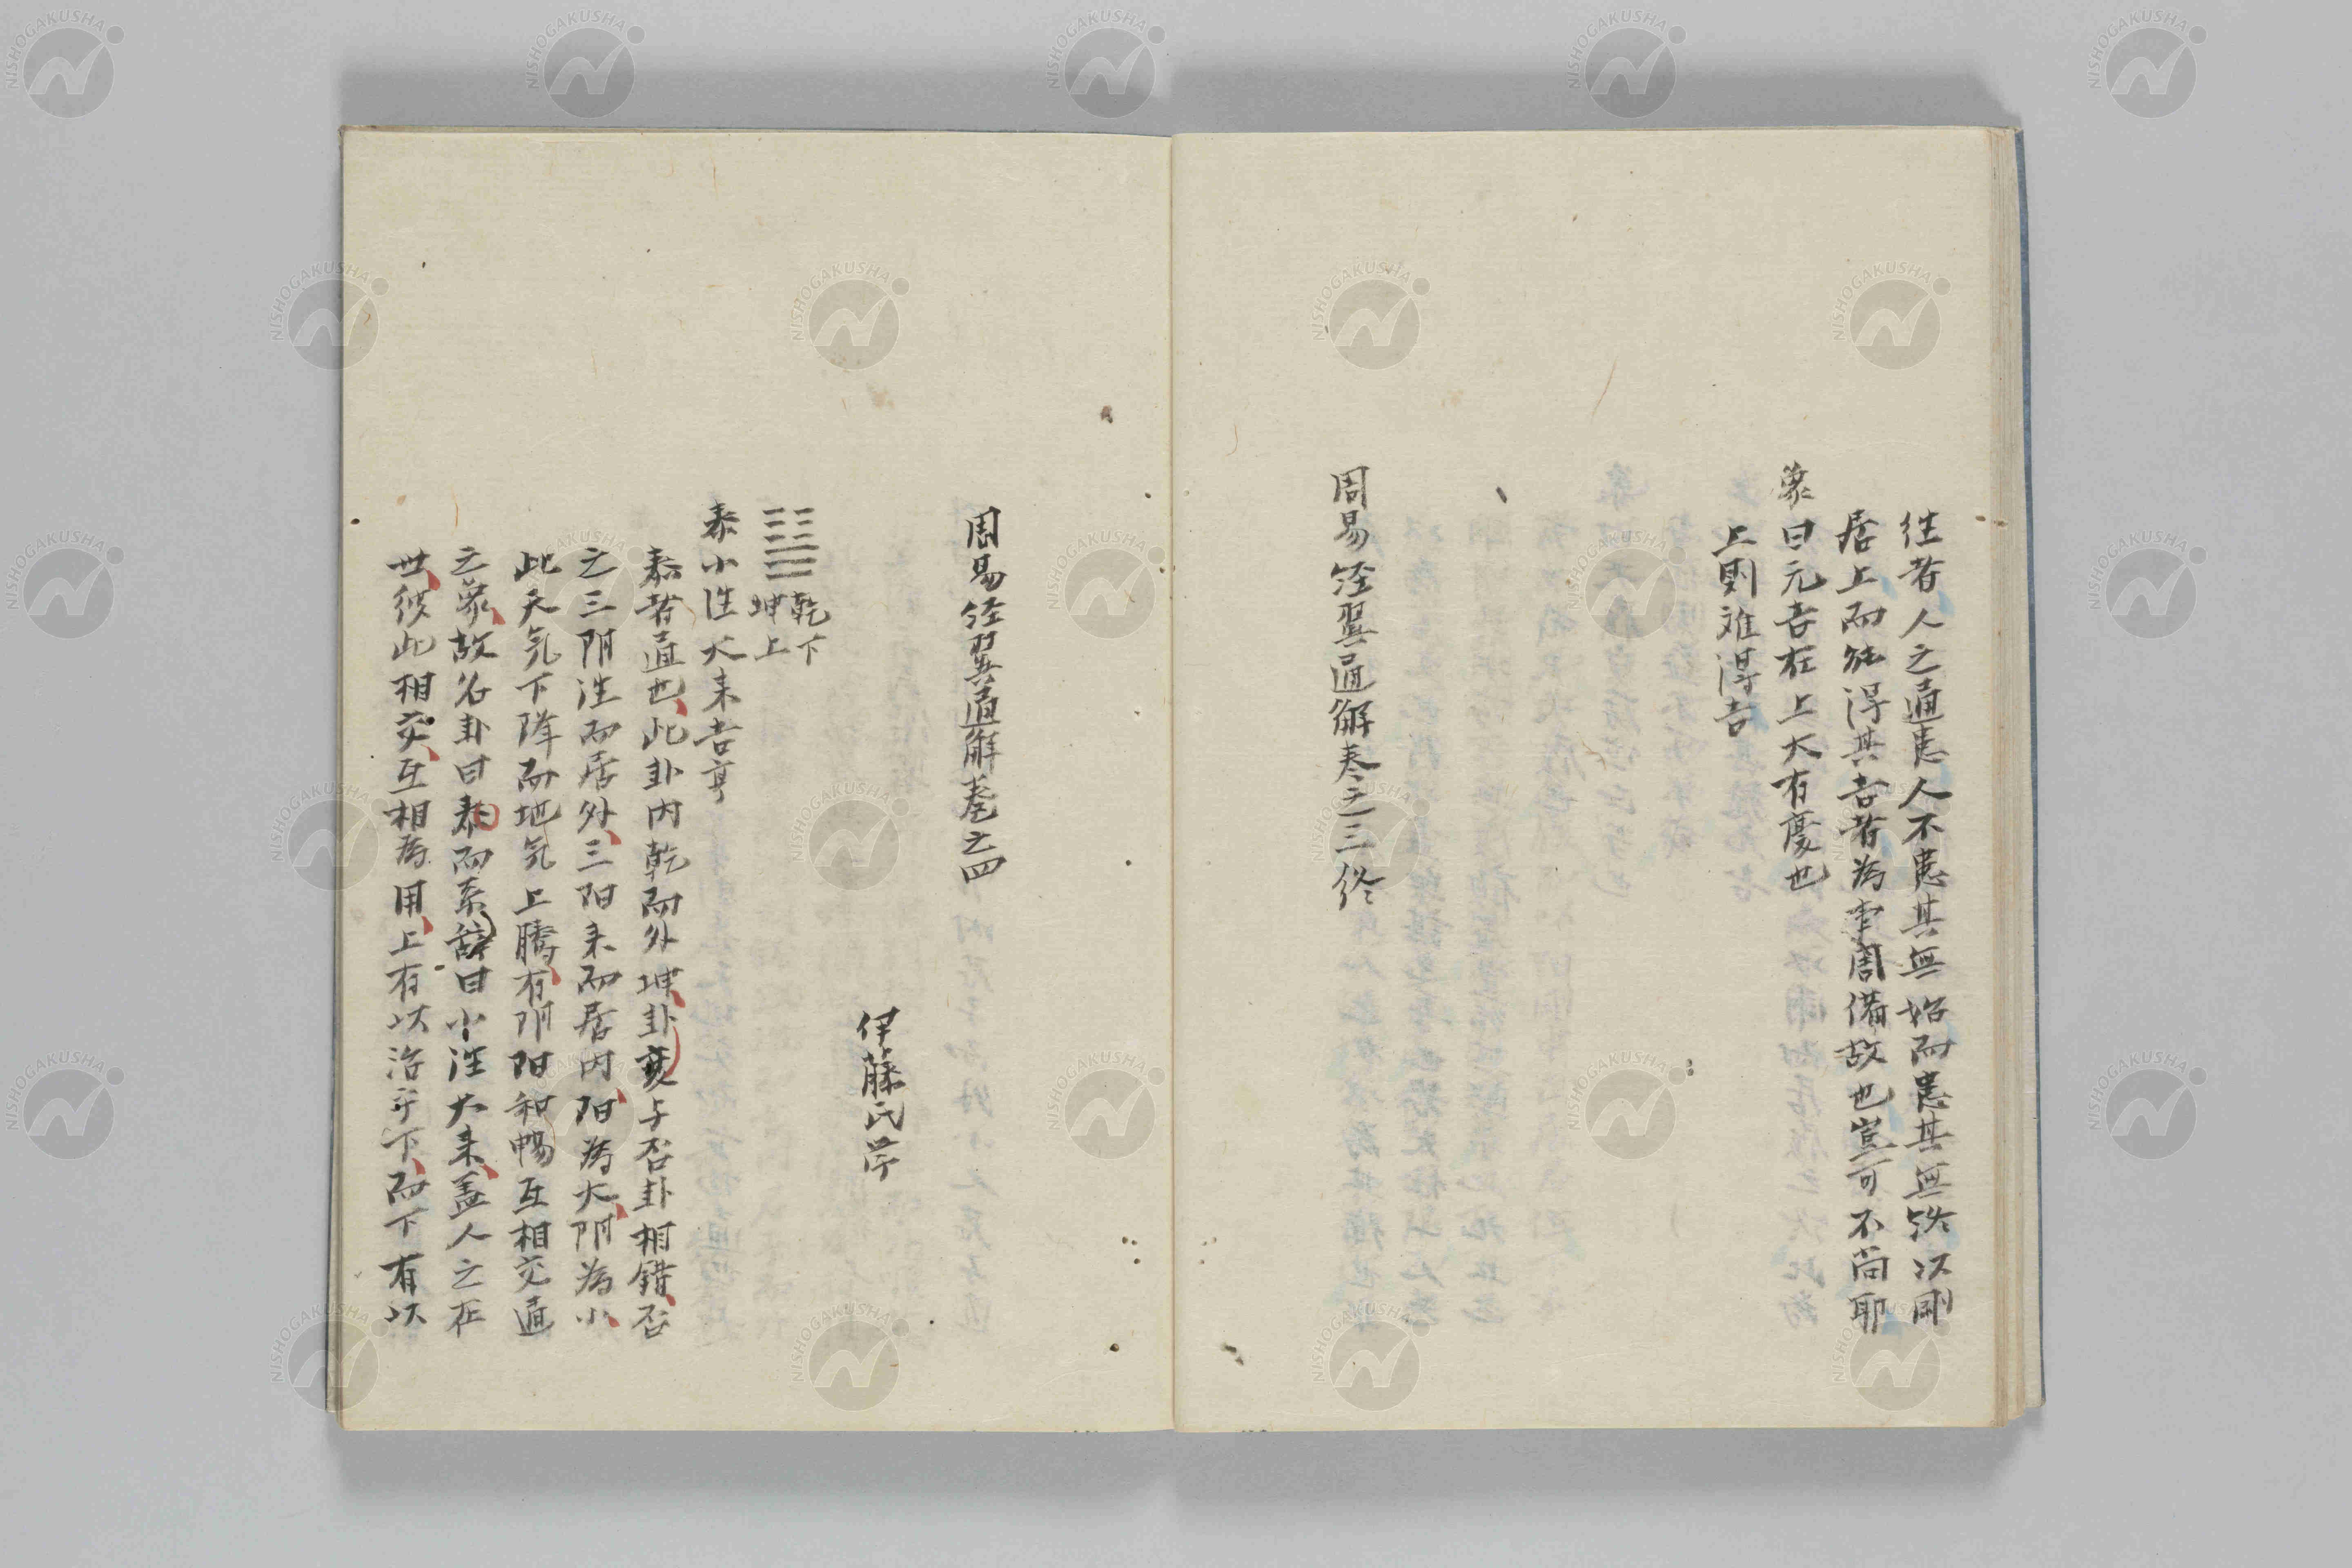 往者人之通患人不患其無始而患其無終以剛
居上而能得其吉者為事周備故也豈可不尚耶
象曰元吉在上大有慶也
上則难得吉
周易経翼通解巻之三終
周易経翼通解巻之四
伊藤氏学
乾下
坤上
泰小往大来吉亨
泰者通也此卦内乾而外坤卦変与否卦相錯否
之三阴往而居外三阳来而居内阳為大阴為小
此天気下降而地気上騰有阴阳和暢互相交通
之象故名卦曰泰而系辞曰小往大来盖人之在
世彼此相交互相為用上有以治乎下而下有以
NISHOGAKUSHA